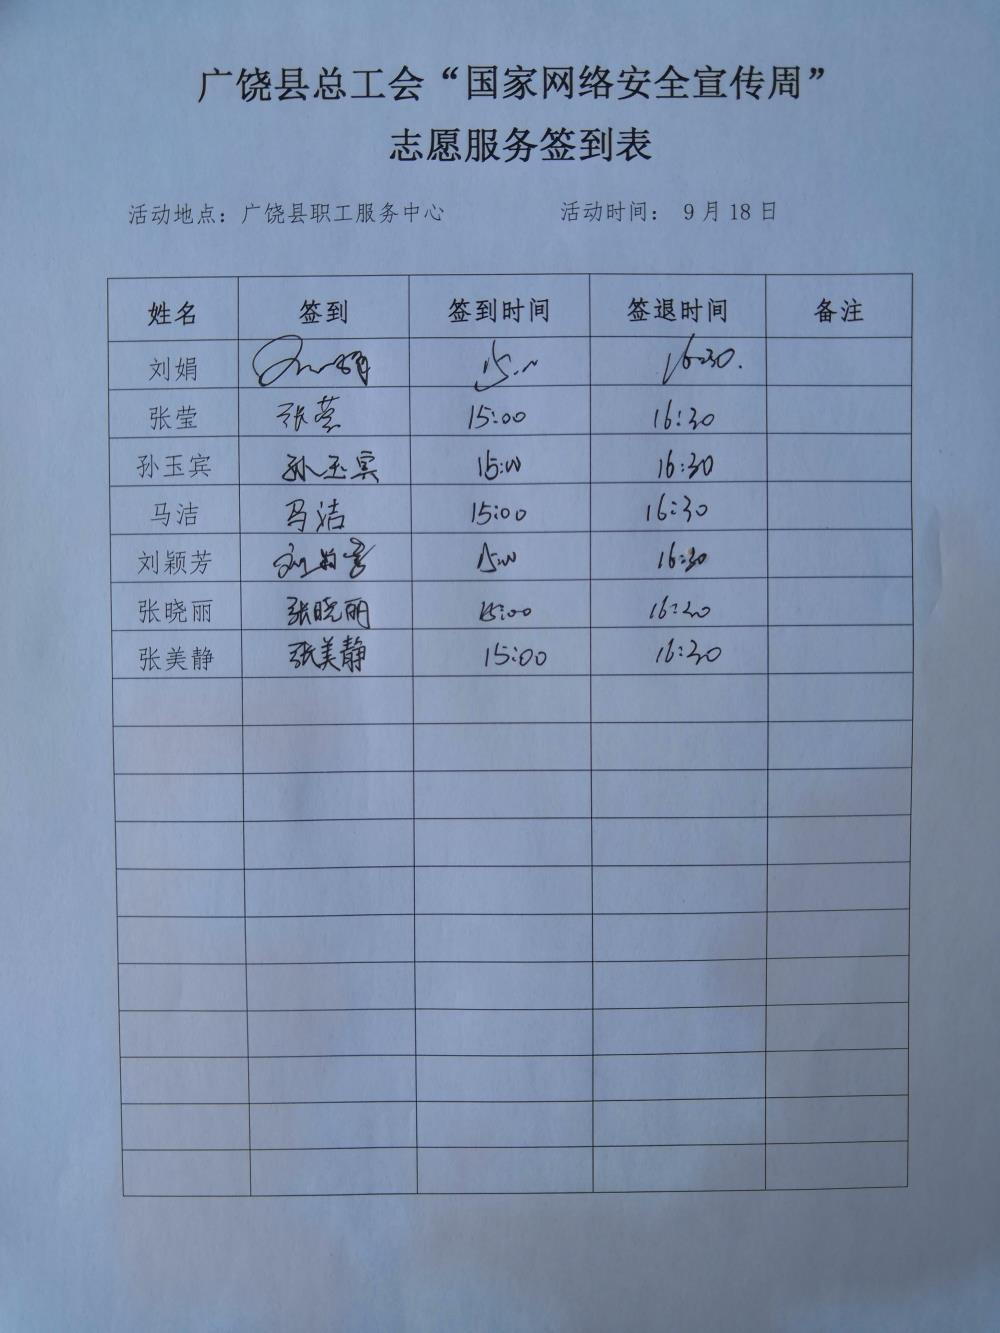 广饶县总工会“国家网络安全宣传周”
志愿服务签到表
活动地点：广饶县职工服务中心 活动时间： 9 月 18 日
姓名 签到 签到时间 签退时间 备注
刘娟 刘娟 15:00 16:30.
张莹 张莹 15:00 16:30
孙玉宾 孙玉宾 15:00 16:30
马洁 马洁 15:00 16:30
刘颖芳 刘颖芳 15:00 16:30
张晓丽 张晓丽 15:00 16:30
张美静 张美静 15:00 16:30